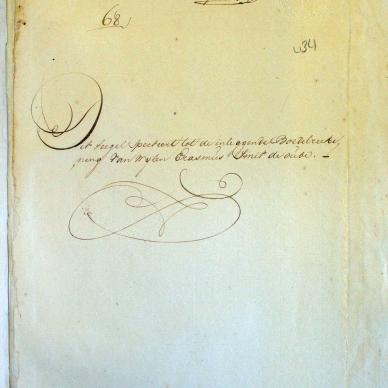 68
434
Dit zegel specteert tot de inleggende Boedelreeke„
„ning van wylen Erasmus Smit de oude. —